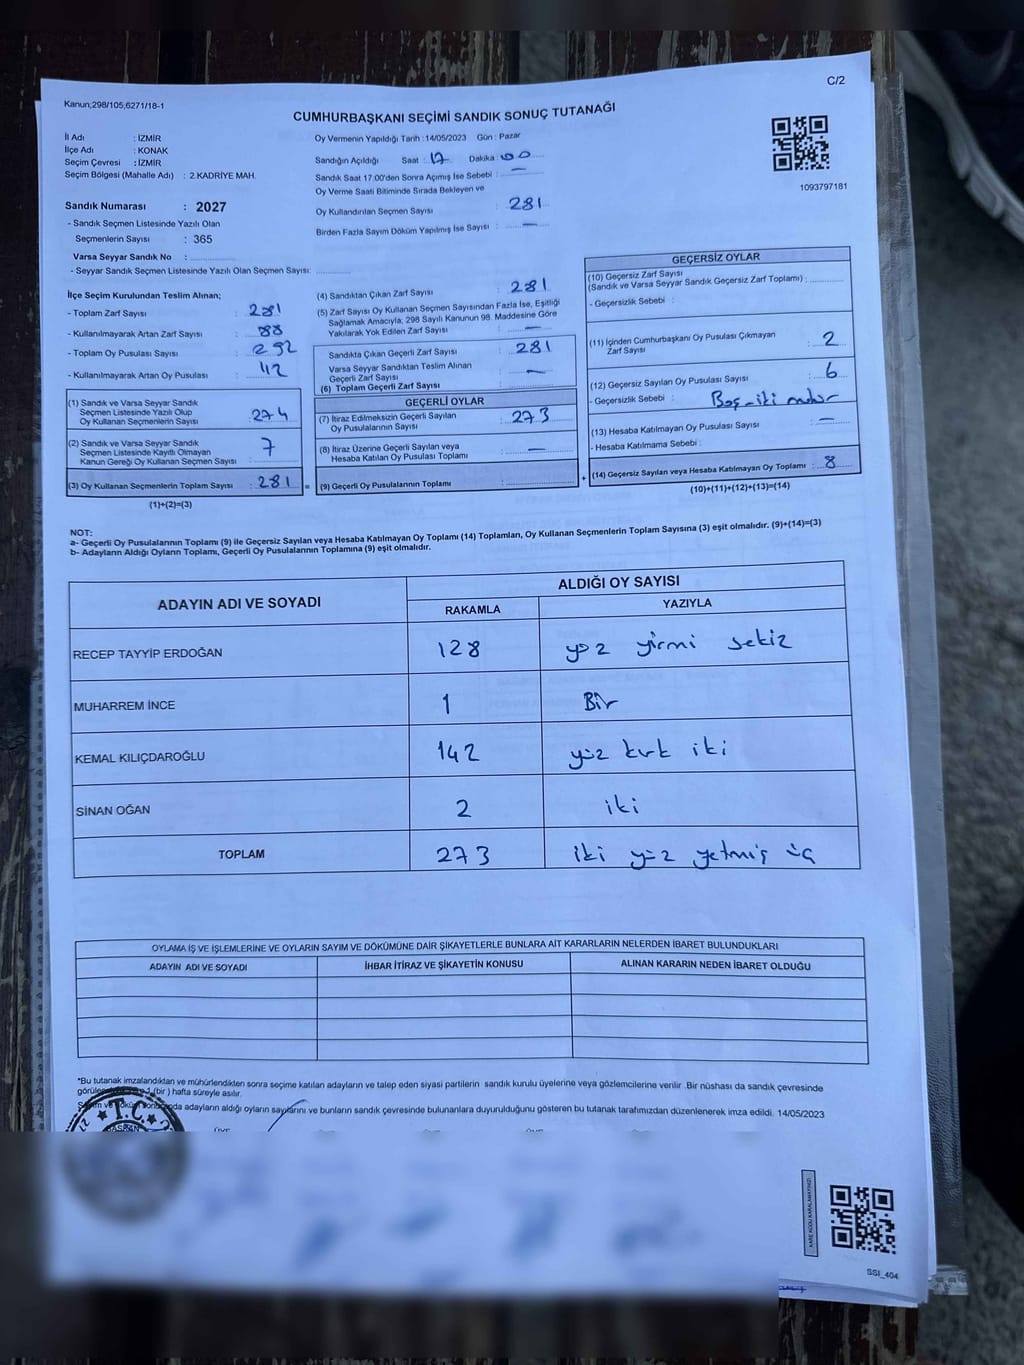 C/2
Kanun;298/105,6271/18-1
CUMHURBAŞKANI SEÇİMİ SANDIK SONUÇ TUTANAĞI
İl Adı : İZMİR
İlçe Adı : KONAK
Seçim Çevresi : İZMİR
Seçim Bölgesi (Mahalle Adı) : 2.KADRİYE MAH.
Sandık Numarası : 2027
- Sandık Seçmen Listesinde Yazılı Olan
Seçmenlerin Sayısı : 365
Varsa Seyyar Sandık No :
- Seyyar Sandık Seçmen Listesinde Yazılı Olan Seçmen Sayısı:
Oy Vermenin Yapıldığı Tarih : 14/05/2023 Gün : Pazar
Sandığın Açıldığı Saat : 17 Dakika : 00
Sandık Saat 17:00'den Sonra Açımış İse Sebebi : —
Oy Verme Saati Bitiminde Sırada Bekleyen ve
Oy Kullandırılan Seçmen Sayısı : 281
Birden Fazla Sayım Döküm Yapılmış İse Sayısı : —
1093797181
İlçe Seçim Kurulundan Teslim Alınan;
- Toplam Zarf Sayısı : 281
- Kullanılmayarak Artan Zarf Sayısı : 88
- Toplam Oy Pusulası Sayısı :
- Kullanılmayarak Artan Oy Pusulası :
(1) Sandık ve Varsa Seyyar Sandık
Seçmen Listesinde Yazılı Olup
Oy Kullanan Seçmenlerin Sayısı : 274
(2) Sandık ve Varsa Seyyar Sandık
Seçmen Listesinde Kayıtlı Olmayan
Kanun Gereği Oy Kullanan Seçmen Sayısı : 7
(3) Oy Kullanan Seçmenlerin Toplam Sayısı : 281 =
(1)+(2)=(3)
(4) Sandıktan Çıkan Zarf Sayısı : 281
(5) Zarf Sayısı Oy Kullanan Seçmen Sayısından Fazla İse, Eşitliği
Sağlamak Amacıyla; 298 Sayılı Kanunun 98. Maddesine Göre
Yakılarak Yok Edilen Zarf Sayısı : —
Sandıkta Çıkan Geçerli Zarf Sayısı : 281
Varsa Seyyar Sandıktan Teslim Alınan
Geçerli Zarf Sayısı : —
(6) Toplam Geçerli Zarf Sayısı :
GEÇERLİ OYLAR
(7) İtiraz Edilmeksizin Geçerli Sayılan
Oy Pusulalarının Sayısı : 273
(8) İtiraz Üzerine Geçerli Sayılan veya
Hesaba Katılan Oy Pusulası Toplamı : —
(9) Geçerli Oy Pusulalarının Toplamı : +
GEÇERSİZ OYLAR
(10) Geçersiz Zarf Sayısı
(Sandık ve Varsa Seyyar Sandık Geçersiz Zarf Toplamı) :
- Geçersizlik Sebebi :
(11) İçinden Cumhurbaşkanı Oy Pusulası Çıkmayan
Zarf Sayısı : 2
(12) Geçersiz Sayılan Oy Pusulası Sayısı : 6
- Geçersizlik Sebebi : Boş-iki mühür
(13) Hesaba Katılmayan Oy Pusulası Sayısı : —
- Hesaba Katılmama Sebebi :
(14) Geçersiz Sayılan veya Hesaba Katılmayan Oy Toplamı : 8
(10)+(11)+(12)+(13)=(14)
NOT:
a- Geçerli Oy Pusulalarının Toplamı (9) ile Geçersiz Sayılan veya Hesaba Katılmayan Oy Toplamı (14) Toplamları, Oy Kullanan Seçmenlerin Toplam Sayısına (3) eşit olmalıdır. (9)+(14)=(3)
b- Adayların Aldığı Oyların Toplamı, Geçerli Oy Pusulalarının Toplamına (9) eşit olmalıdır.
ADAYIN ADI VE SOYADI ALDIĞI OY SAYISI
RAKAMLA YAZIYLA
RECEP TAYYİP ERDOĞAN 128 yüz yirmi sekiz
MUHARREM İNCE 1 Bir
KEMAL KILIÇDAROĞLU 142 yüz kırk iki
SİNAN OĞAN 2 iki
TOPLAM 273 iki yüz yetmiş üç
OYLAMA İŞ VE İŞLEMLERİNE VE OYLARIN SAYIM VE DÖKÜMÜNE DAİR ŞİKAYETLERLE BUNLARA AİT KARARLARIN NELERDEN İBARET BULUNDUKLARI
ADAYIN ADI VE SOYADI İHBAR İTİRAZ VE ŞİKAYETİN KONUSU ALINAN KARARIN NEDEN İBARET OLDUĞU
*Bu tutanak imzalandıktan ve mühürlendikten sonra seçime katılan adayların ve talep eden siyasi partilerin sandık kurulu üyelerine veya gözlemcilerine verilir .Bir nüshası da sandık çevresinde
1 (bir ) hafta süreyle asılır.
adayların aldığı oyların sayılarını ve bunların sandık çevresinde bulunanlara duyurulduğunu gösteren bu tutanak tarafımızdan düzenlenerek imza edildi. 14/05/2023
T.C.
SSI_404